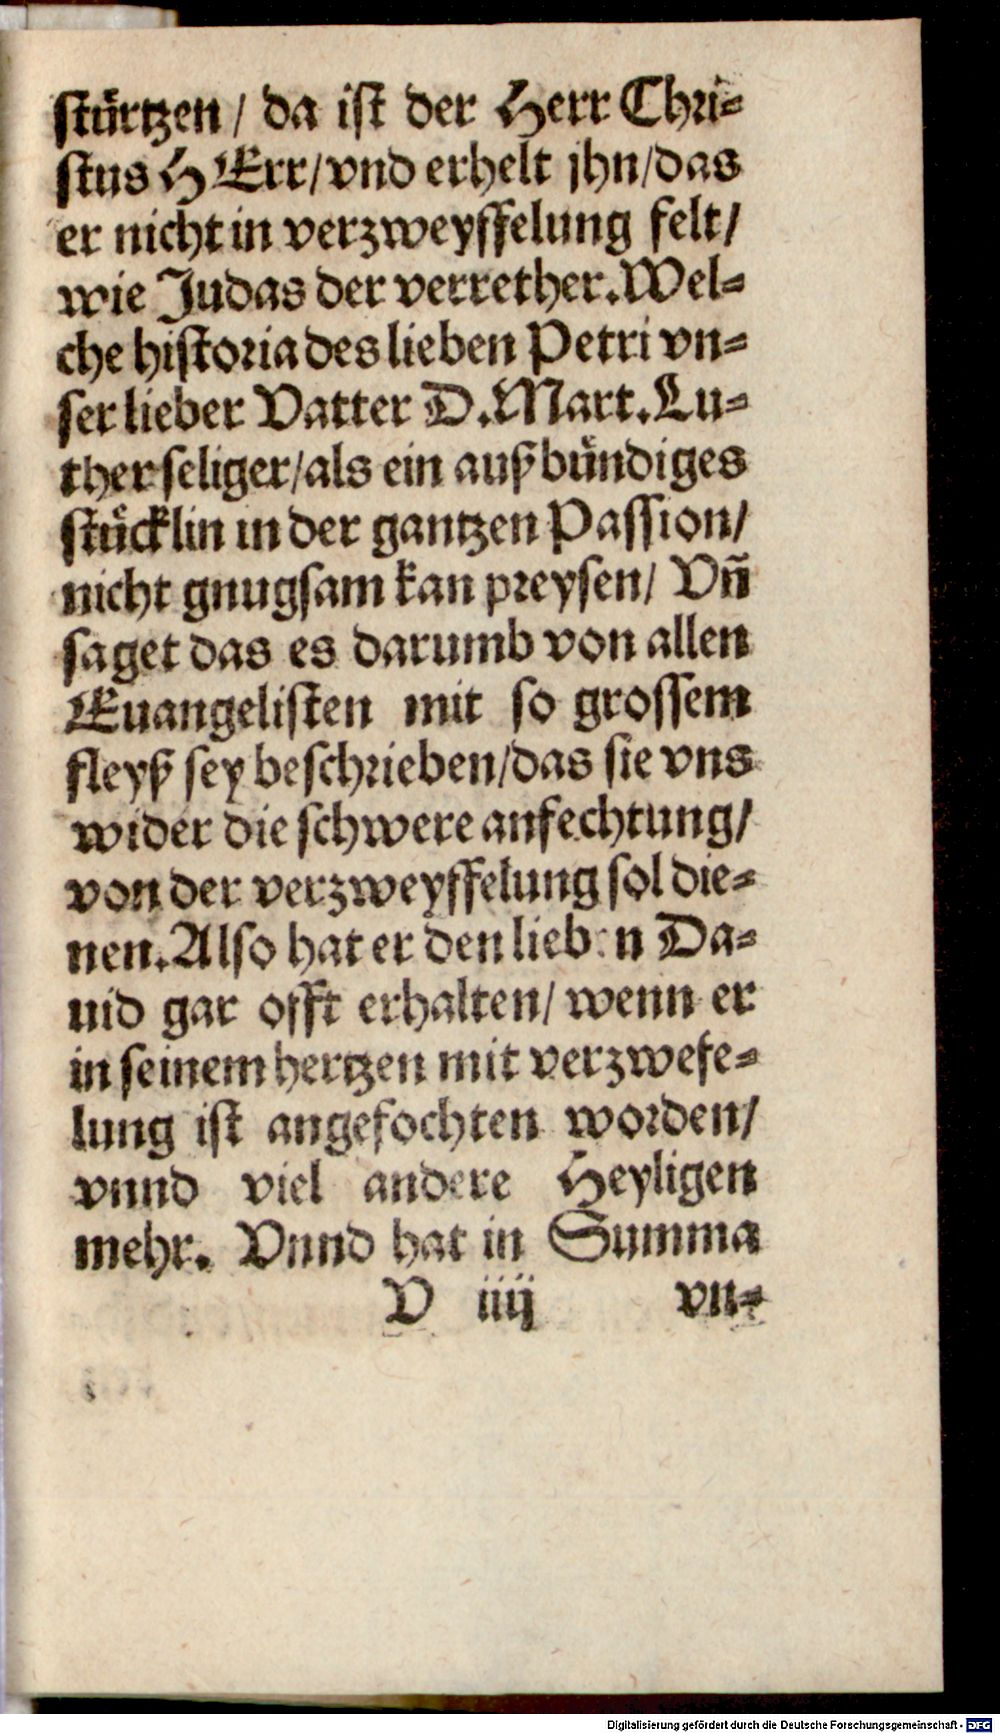 stürtzen / da ist der Herr Chri-
stus HErr/vnd erhelt jhn/das
er nicht in verzweyffelung felt/
wie Judas der verrether. Wel-
che historia des lieben Petri vn-
ser lieber Vatter D. Mart. Lu-
ther seliger/als ein außbündiges
stücklin in der gantzen Passion/
nicht gnugsam kan preysen/ Vñ
saget das es darumb von allen
Euangelisten mit so grossem
fleyß sey beschrieben/das sie vns
wider die schwere anfechtung/
von der verzweyffelung sol die-
nen. Also hat er den lieben Da-
uid gar offt erhalten/ wenn er
in seinem hertzen mit verzwefe-
lung ist angefochten worden/
vnnd viel andere Heyligen
mehr. Vnnd hat in Summa
V iiij vn-
Digitalisierung gefördert durch die Deutsche Forschungsgemeinschaft - DFG